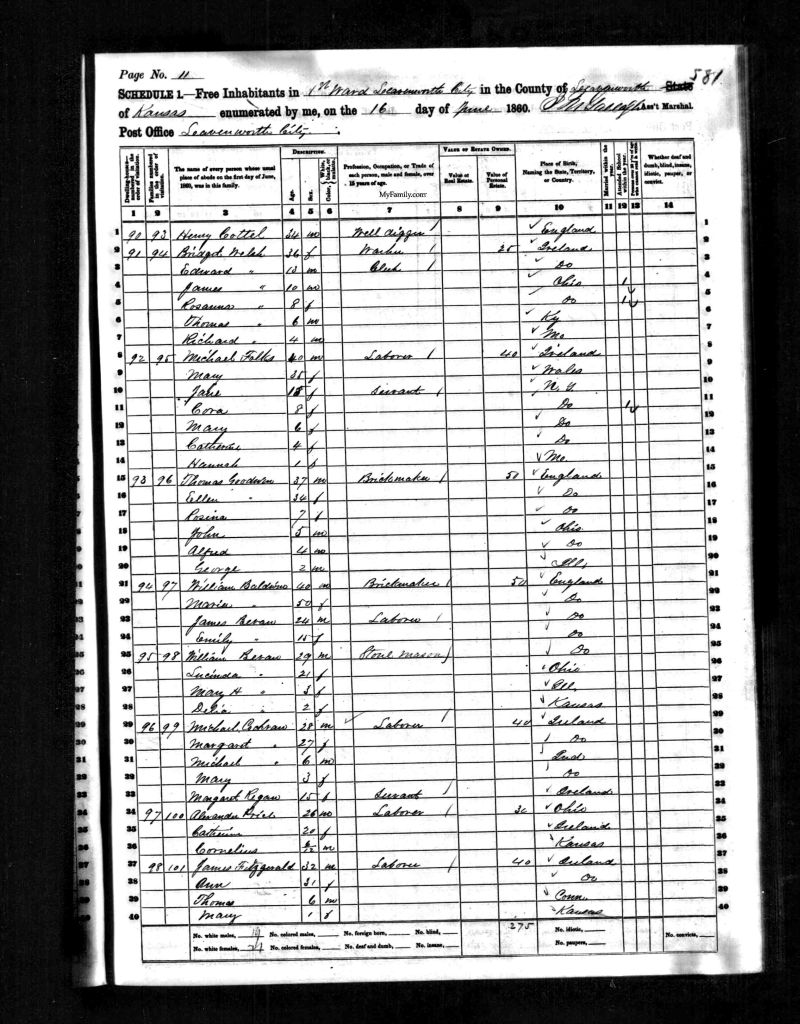 Page No. 11
581
SCHEDULE 1.—Free Inhabitants in 1st Ward Leavenworth City in the County of Leavenworth State
of Kansas enumerated by me, on the 16 day of June 1860. Ass't Marshal.
Post Office Leavenworth City.
DESCRIPTION. VALUE OF ESTATE OWNED.
Dwelling-houses—numbered in the order of visitation. Families numbered in the order of visitation. The name of every person whose usual place of abode on the first day of June, 1860, was in this family. Age. Sex. Color, White, black, or mulatto. Profession, Occupation, or Trade of each person, male and female, over 15 years of age. Value of Real Estate. Value of Personal Estate. Place of Birth, Naming the State, Territory, or Country. Married within the year. Attended School within the year. Whether deaf and dumb, blind, insane, idiotic, pauper, or convict.
MyFamily.com
1 2 3 4 5 6 7 8 9 10 11 12 13 14
1 90 93 Henry Cottel 34 m Well digger England 1
2 91 94 Bridget Welsh 36 f Washer 25 Ireland 2
3 Edward " 13 m Clerk Do 3
4 James " 10 m Ohio 1 4
5 Rosanna " 8 f Do 1 5
6 Thomas " 6 m Ky 6
7 Richard " 4 m Mo 7
8 92 95 Michael Folks 40 m Laborer 40 Ireland 8
9 Mary 35 f Wales 9
10 Jane 15 f Servant N. Y 10
11 Cora 8 f Do 1 11
12 Mary 6 f Do 12
13 Catherine 4 f Do 13
14 Hannah 1 f Mo 14
15 93 96 Thomas Goodwin 37 m Brickmaker 50 England 15
16 Ellen " 34 f Do 16
17 Rosina 7 f Do 17
18 John 5 m Ohio 18
19 Alfred 4 m Do 19
20 George 2 m Ill. 20
21 94 97 William Baldwin 40 m Brickmaker 50 England 21
22 Maria " 50 f Do 22
23 James Bevan 24 m Laborer Do 23
24 Emily " 15 f Do 24
25 95 98 William Bevan 29 m Stone Mason Do 25
26 Lucinda " 21 f Ohio 26
27 Mary H " 3 f Ill. 27
28 Delia " 2 f Kansas 28
29 96 99 Michael Cochran 28 m Laborer 40 Ireland 29
30 Margaret " 27 f Do 30
31 Michael " 6 m Ind 31
32 Mary 3 f Do 32
33 Margaret Regan 15 f Servant Ireland 33
34 97 100 Alexander Price 26 m Laborer 30 Ohio 34
35 Catherine 20 f Ireland 35
36 Cornelius 6/12 m Kansas 36
37 98 101 James Fitzgerald 32 m Laborer 40 Ireland 37
38 Ann 31 f Do 38
39 Thomas 6 m Conn. 39
40 Mary 1 f Kansas 40
No. white males, 19 No. colored males, No. foreign born, No. blind, 275 No. idiotic, No. convicts,
No. white females, 21 No. colored females, No. deaf and dumb, No. insane, No. paupers,